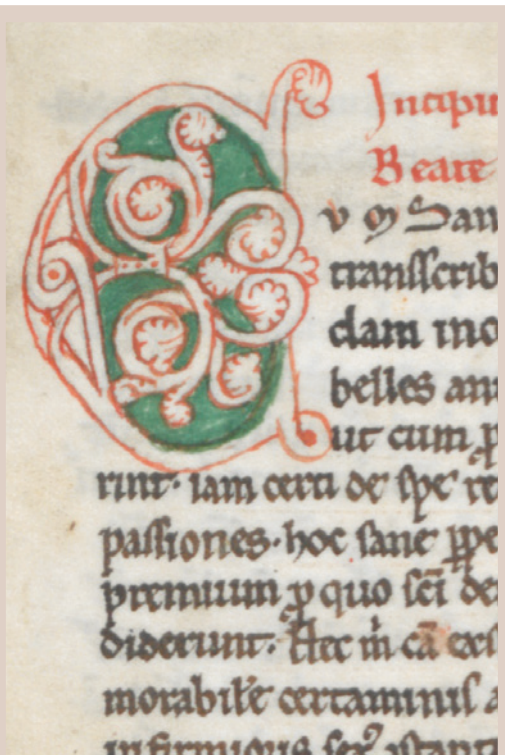 Incipiu
Beate
C vm San
transscrib
dam mo
belles am
ut cum p
rint. iam certi de spe re
passiones. hoc sane ppe
premium p quo sci de
diderunt. Hec
morabile certaminis a
infirmioris